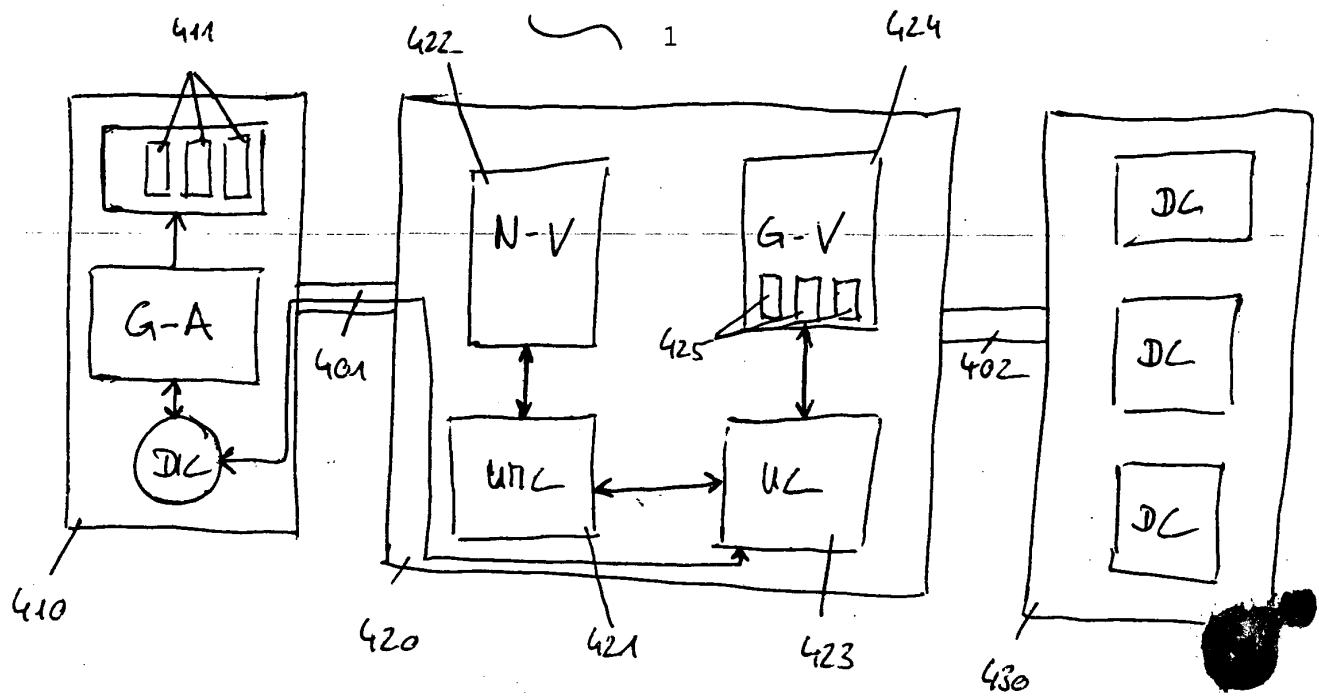 1
411
422
424
N-V
G-V
DC
G-A
401
425
402
DC
DIC
UMC
UC
DC
410
420
421
423
430